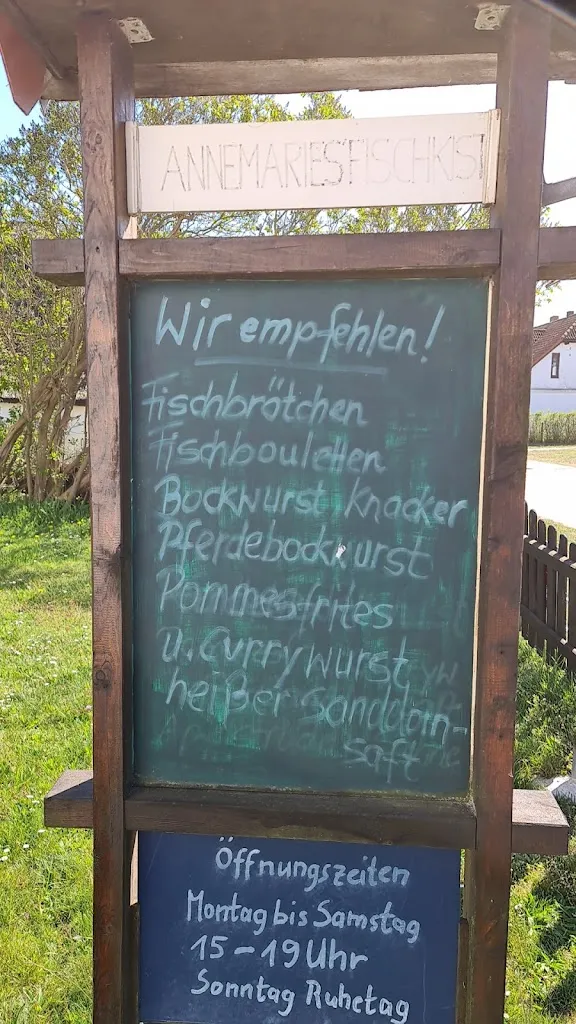 ANNEMARIES FISCHKIST
Wir empfehlen!
Fischbrötchen
Fischbouletten
Bockwurst, Knacker
Pferdebockwurst
Pommesfrites
u. Currywurst
heißer Sanddorn-
saft
Öffnungszeiten
Montag bis Samstag
15-19 Uhr
Sonntag Ruhetag